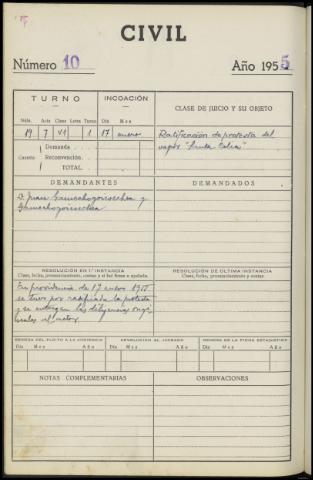 CIVIL
Número 10 Año 1955
TURNO INCOACIÓN CLASE DE JUICIO Y SU OBJETO
Núm. Acta Clase Letra Turno Día Mes
19 7 VI 1 17 enero Ratificación de protesta del
vapor "Santa
Demanda
Cuantía Reconvención
TOTAL
DEMANDANTES DEMANDADOS
D. Juan y
RESOLUCIÓN EN 1.ª INSTANCIA RESOLUCIÓN DE ÚLTIMA INSTANCIA
Clase, fecha, pronunciamiento, costas y si fué firme o apelada. Clase, fecha, pronunciamiento y costas
En providencia de 17 enero 1955
se tuvo por ratificada la protesta
y se entregan las diligencias orig
inales al actor
REMESA DEL PLEITO A LA AUDIENCIA DEVOLUCIÓN AL JUZGADO REMESA DE LA FICHA ESTADÍSTICA
Día Mes Año Día Mes Año Día Mes Año
NOTAS COMPLEMENTARIAS OBSERVACIONES